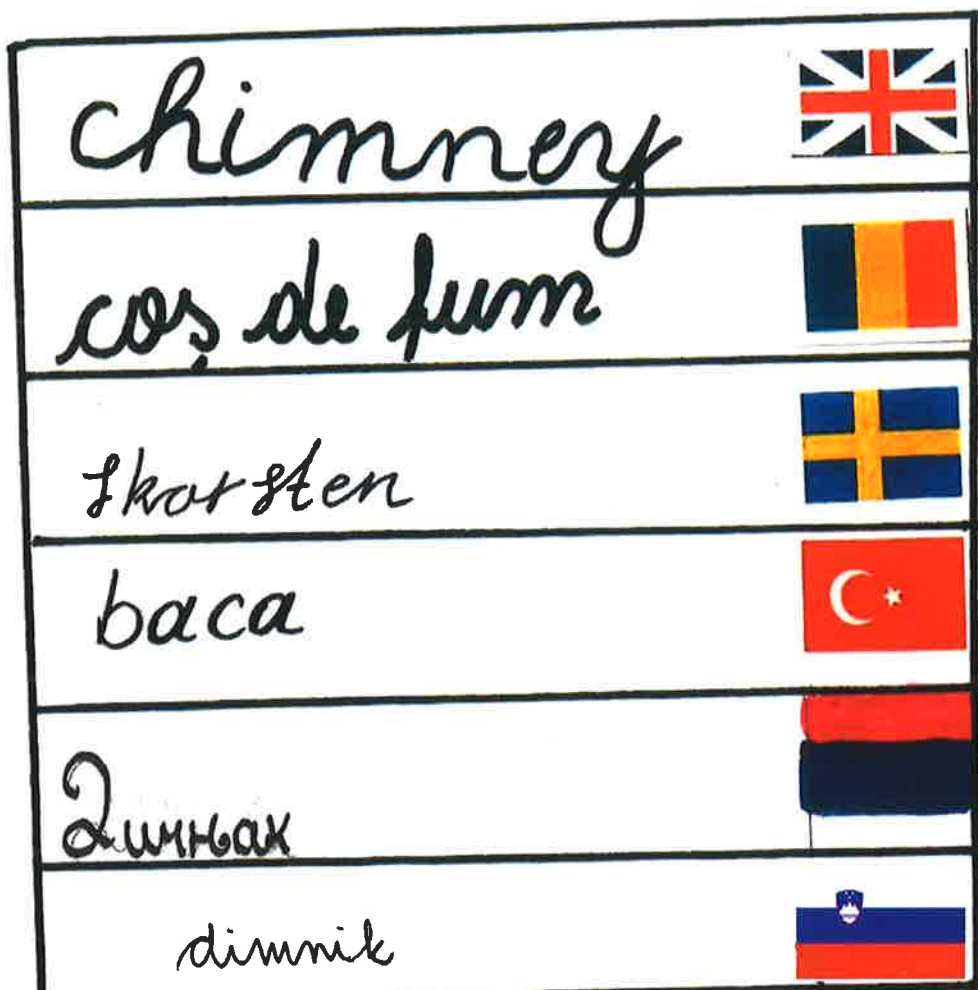 chimney
coș de fum
skorsten
baca
Димњак
dimnik